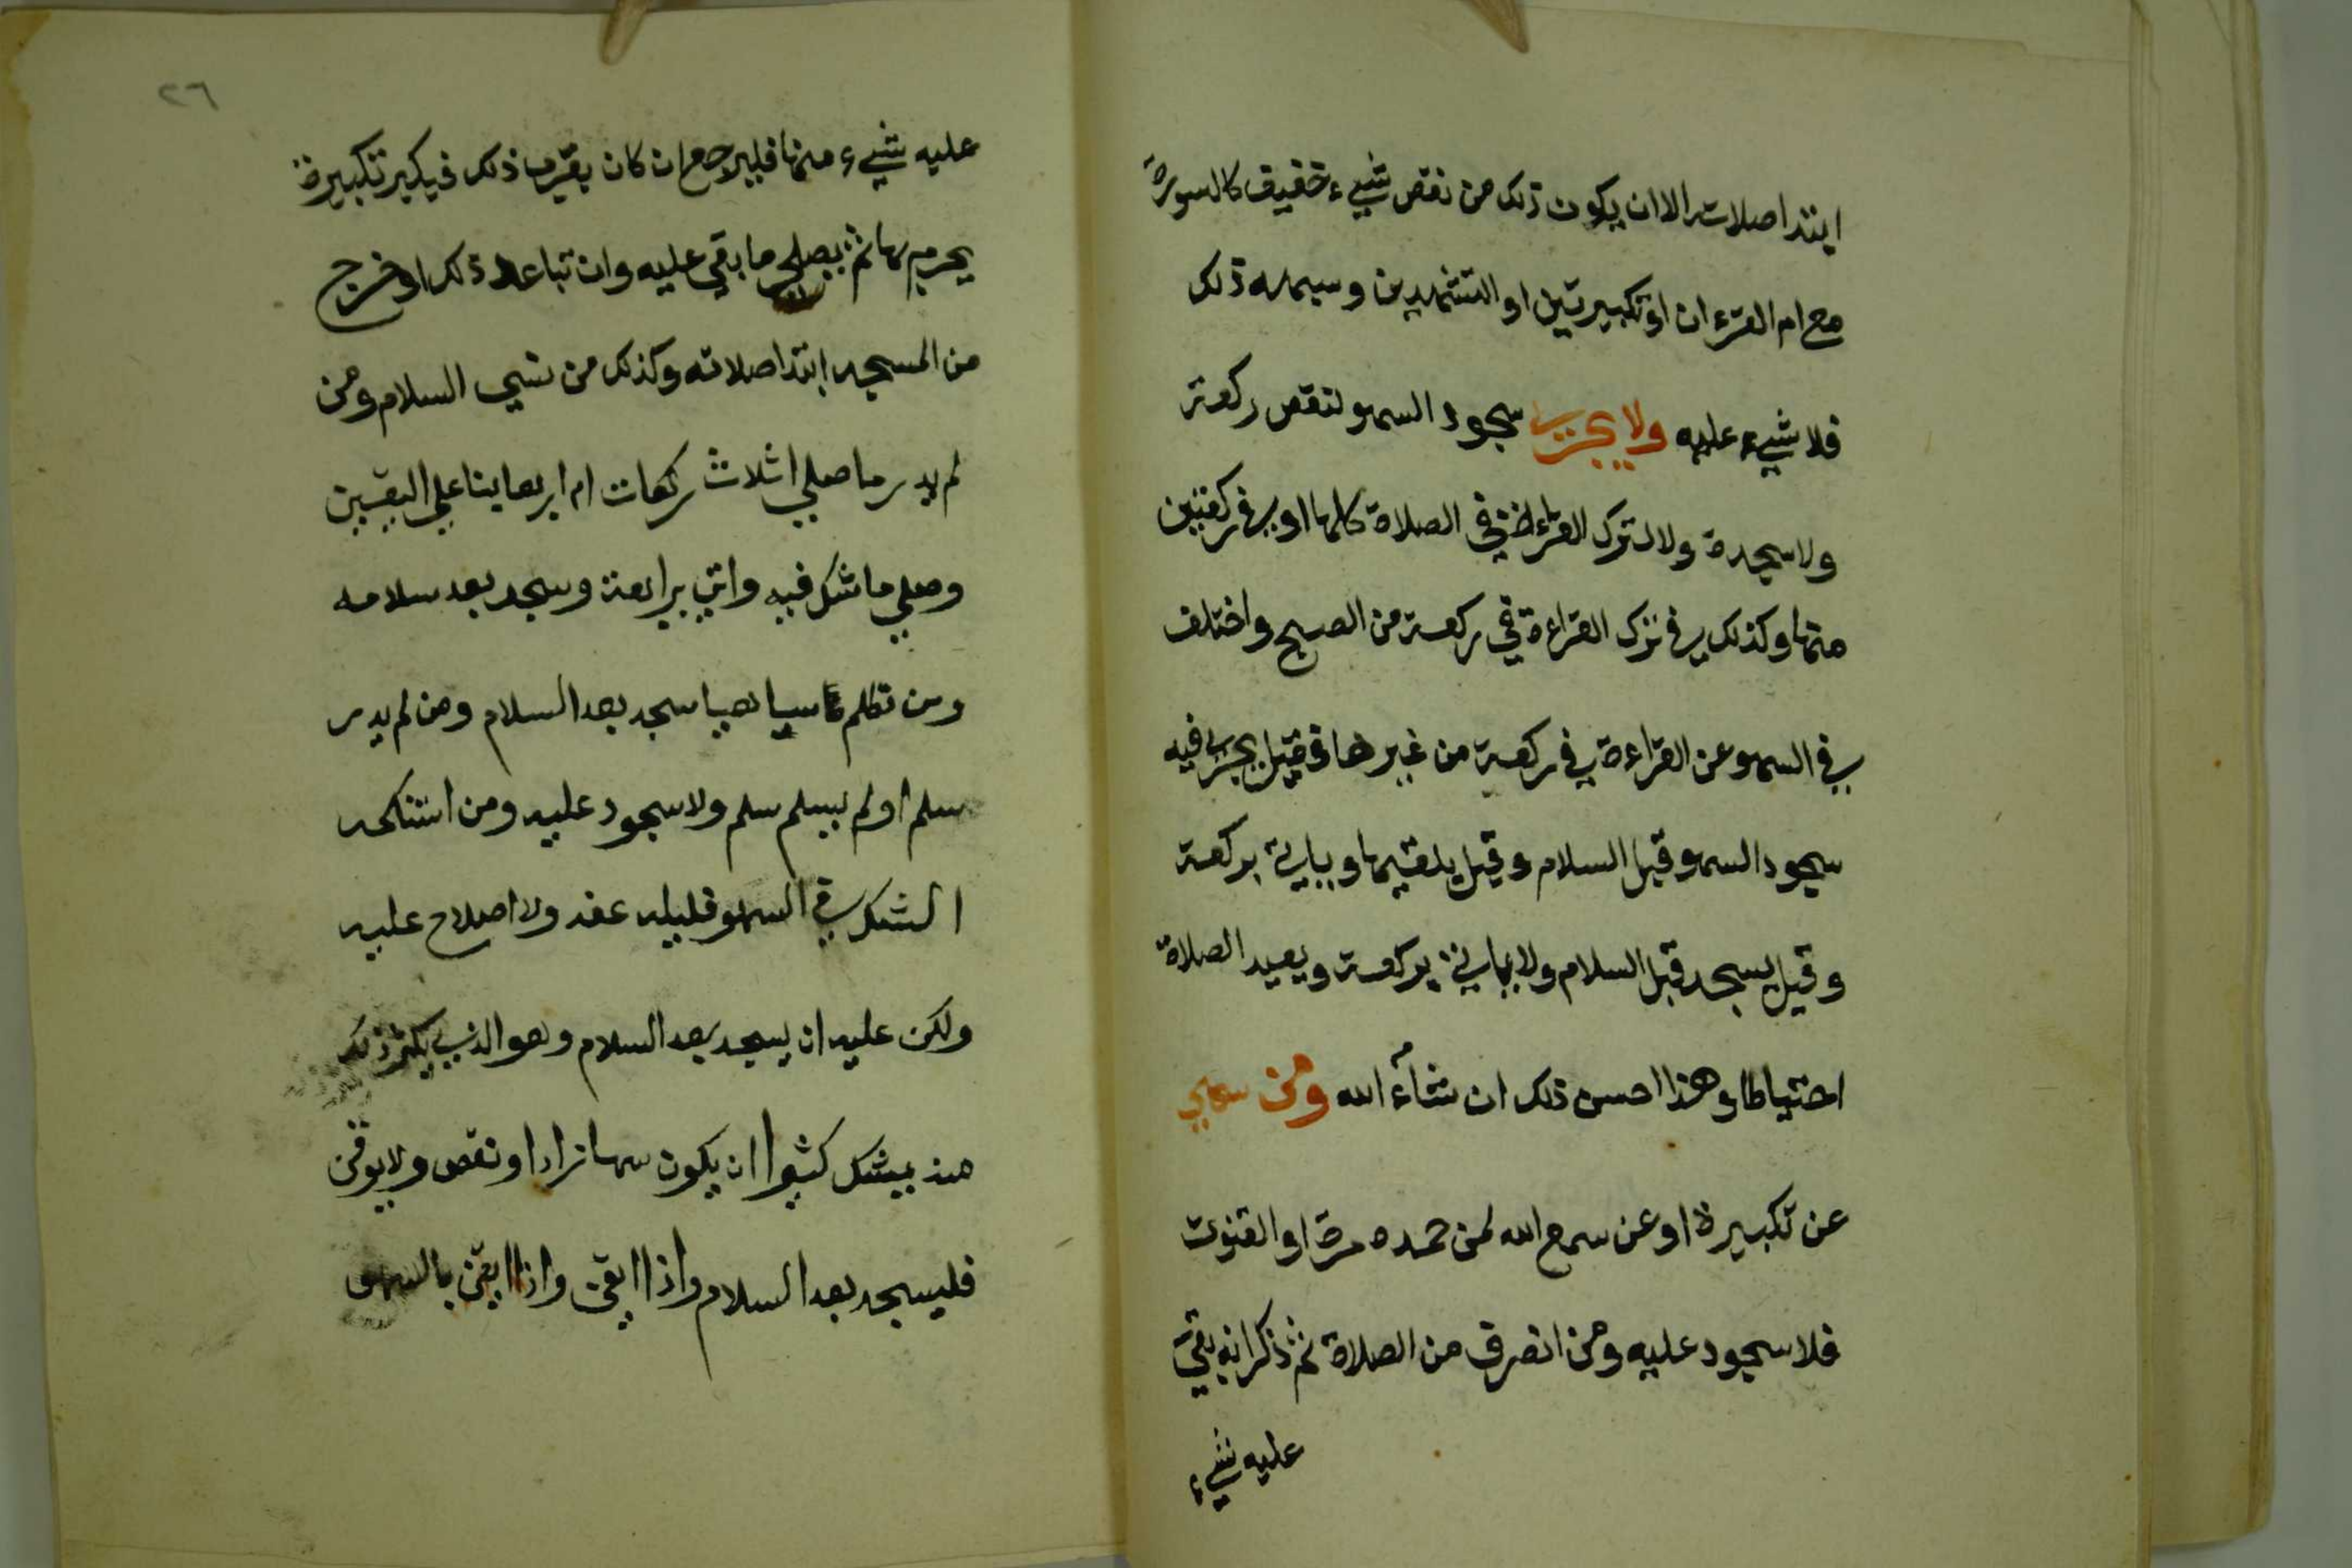 ابتدا صلاته الا ان يكون ذلك من نقص شيء خفيف كالسورة
مع ام القرءان او تكبيرتين او التشهدين وسيمله ذلك
فلا شيء عليه ولا يجزي سجود السهو لنقص ركعة
ولا سجدة ولا لترك القراءة في الصلاة كلها او في ركعتين
منها وكذلك في ترك القراءة في ركعة من الصبح واختلف
في السهو عن القراءة في ركعة من غيرها فقيل يجزي فيه
سجود السهو قبل السلام وقيل يلغيها وياتي بركعة
وقيل يسجد قبل السلام ولا ياتي بركعة ويعيد الصلاة
احتياطا وهذا احسن ذلك ان شآء الله ومن سهي
عن تكبيرة او عن سمع الله لمن حمده مرة او القنوت
فلا سجود عليه ومن انصرف من الصلاة ثم ذكر انه بقي
عليه شيء
٢٦
عليه شيء منها فليرجع ان كان بقرب ذلك فيكبر تكبيرة
يحرم بها ثم يصلي ما بقي عليه وان تباعد ذلك او خرج
من المسجد ابتدا صلاته وكذلك من نسي السلام ومن
لم يدر ما صلي اثلاث ركعات ام اربعا بنا علي اليقين
وصلي ما شك فيه واتي برابعة وسجد بعد سلامه
ومن تكلم ساهيا سجد بعد السلام ومن لم يدر
سلم او لم يسلم سلم ولا سجود عليه ومن استنكحه
الشك في السهو فليله عنه ولا اصلاح عليه
ولكن عليه ان يسجد بعد السلام وهو الذي يكثر ذلك
منه يشك كثيرا ان يكون سها زاد او نقص ولا يوقن
فليسجد بعد السلام واذا ايقن واذا ايقن بالسهو